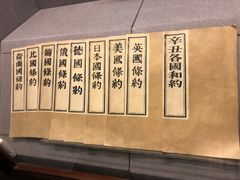 辛丑各國和約
英國條約
美國條約
日本國條約
德國條約
俄國條約
韓國條約
比國條約
荷蘭國條約